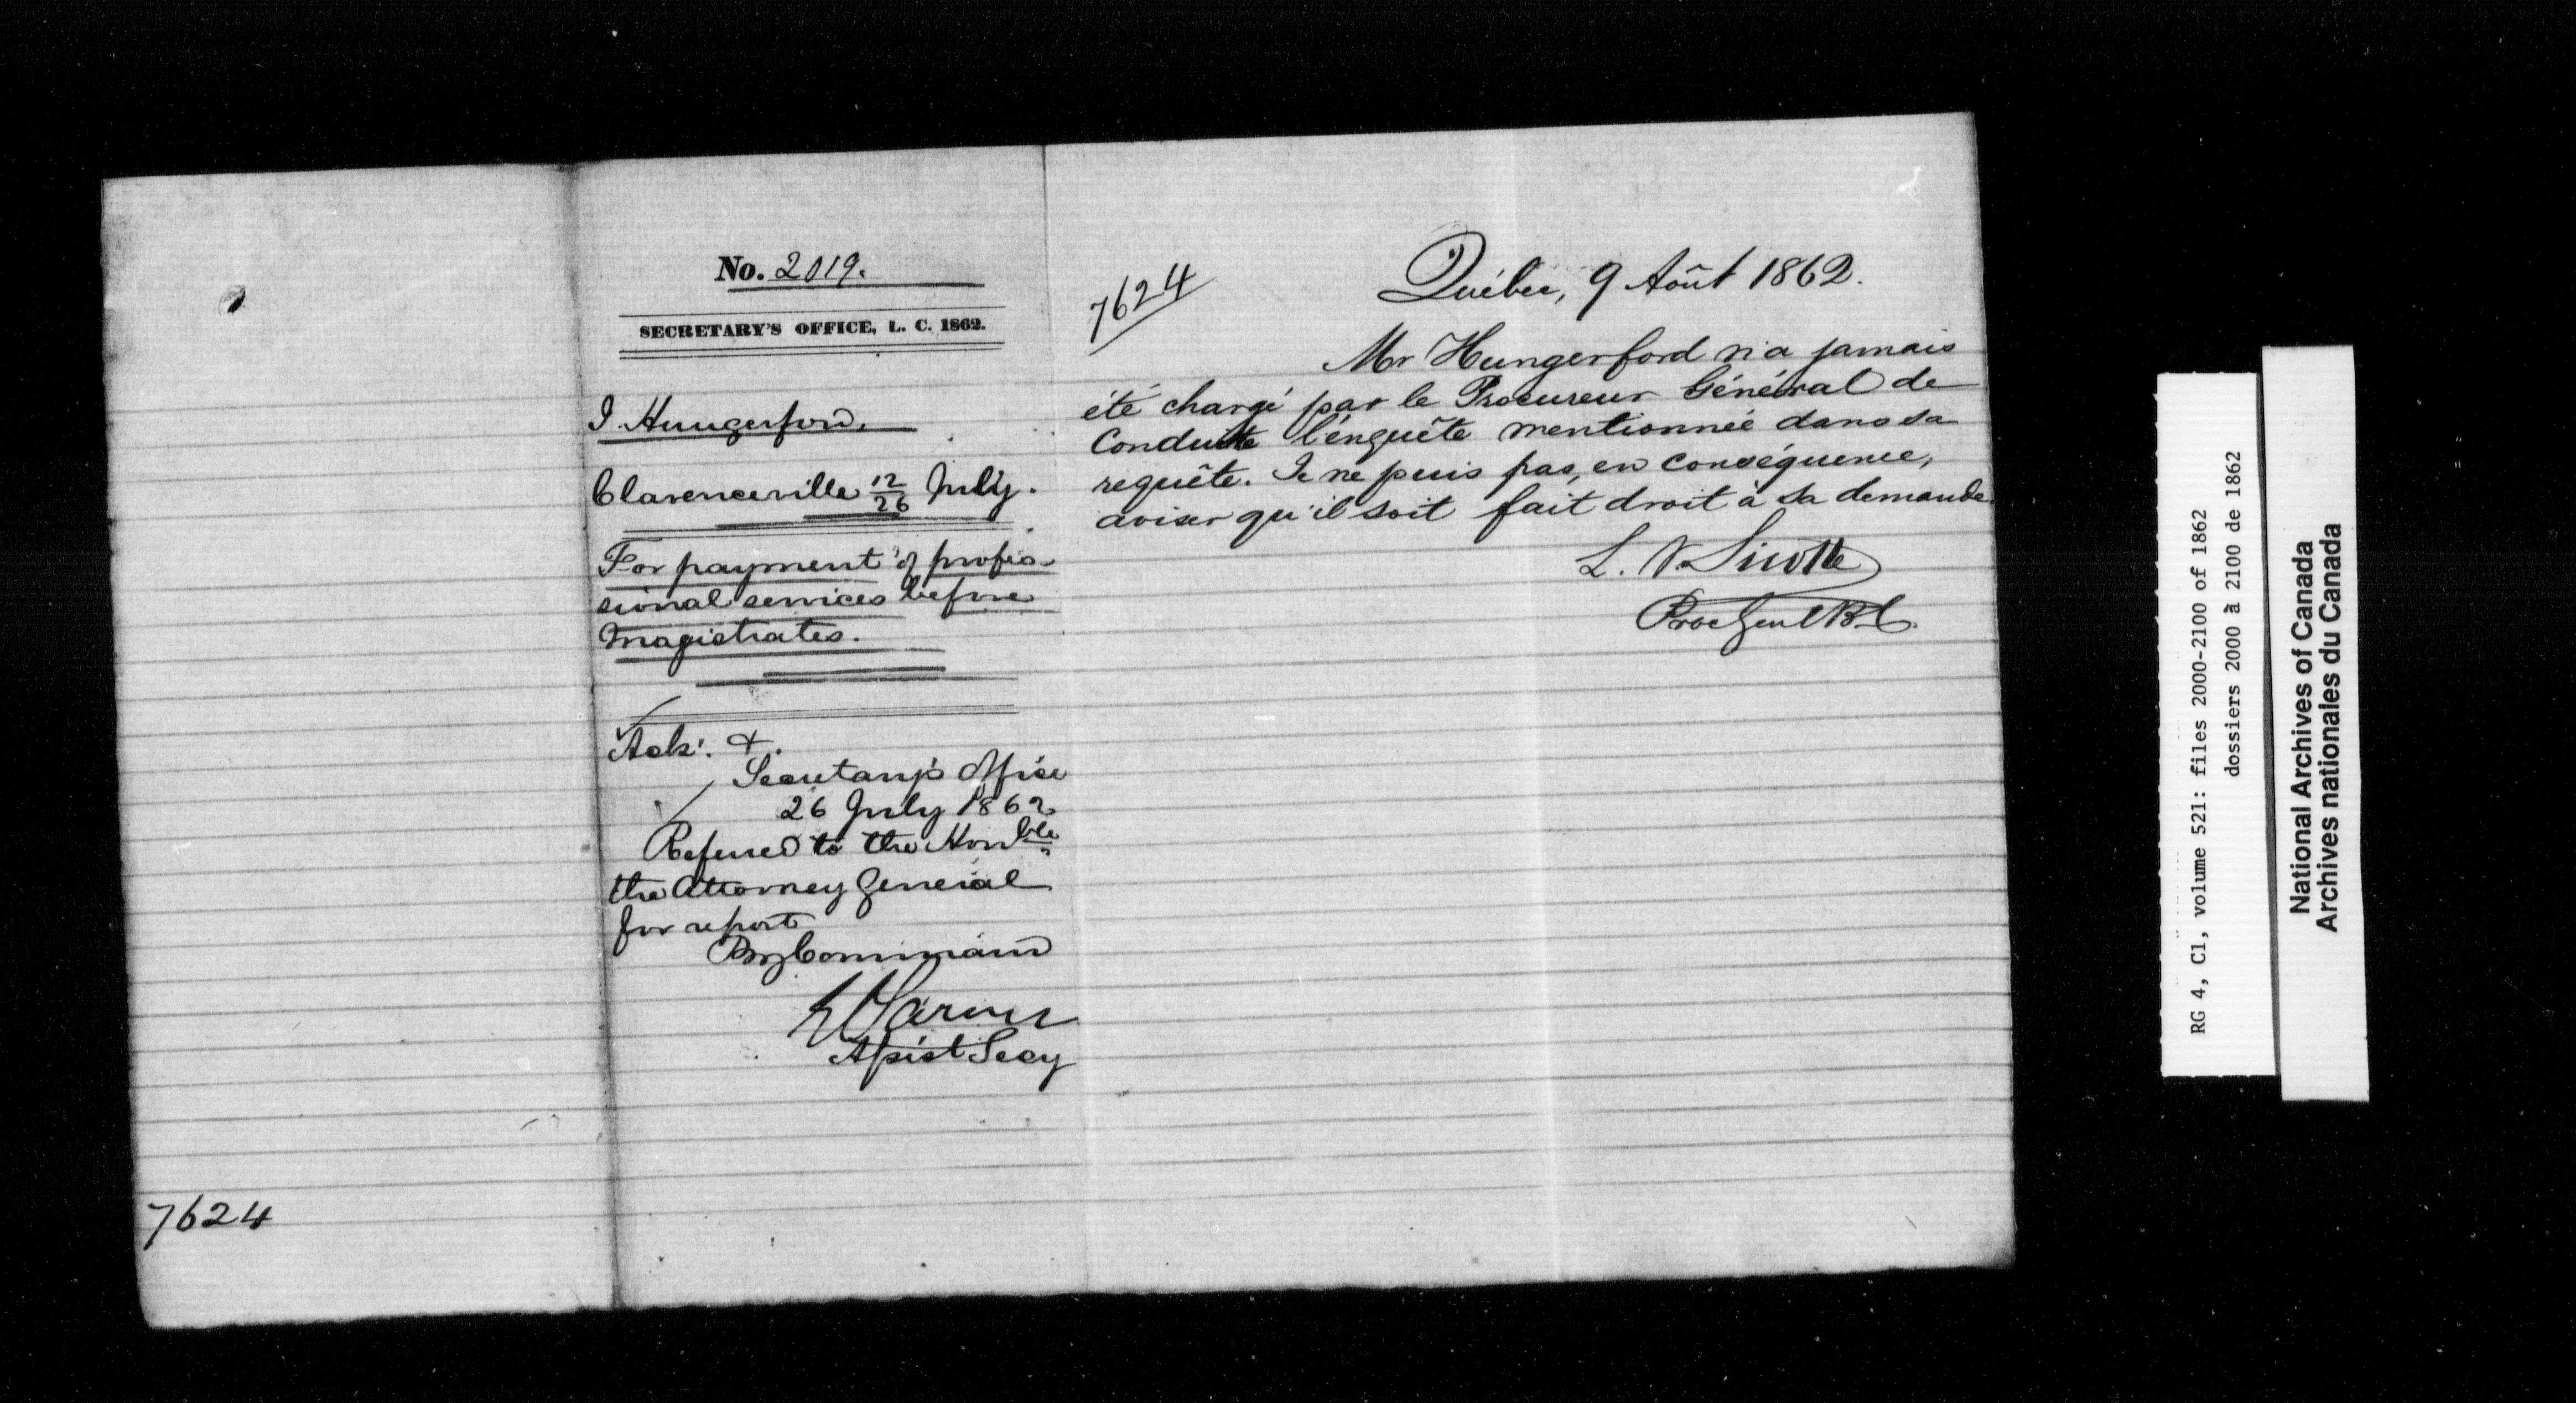 No. 2019.
SECRETARY'S OFFICE, L. C. 1862.
I. Hungerford.
Clarenceville 12/26 July.
For payment of profes-
sional services before
Magistrates.
Ack'. &.
Secretary's Office
26 July 1862
Referred to the Honble
the Attorney General
for report
By Command
Assist Secy
7624
7624
Québec, 9 Août 1862.
Mr Hungerford n'a jamais
été chargé par le Procureur Général de
Conduire l'enquête mentionnée dans sa
requête. Je ne puis pas, en conséquence,
aviser qu'il soit fait droit à sa demande.
L. V. Sicotte
Proc Genl B.C.
RG 4, C1, volume 521: files 2000-2100 of 1862
dossiers 2000 à 2100 de 1862
National Archives of Canada
Archives nationales du Canada